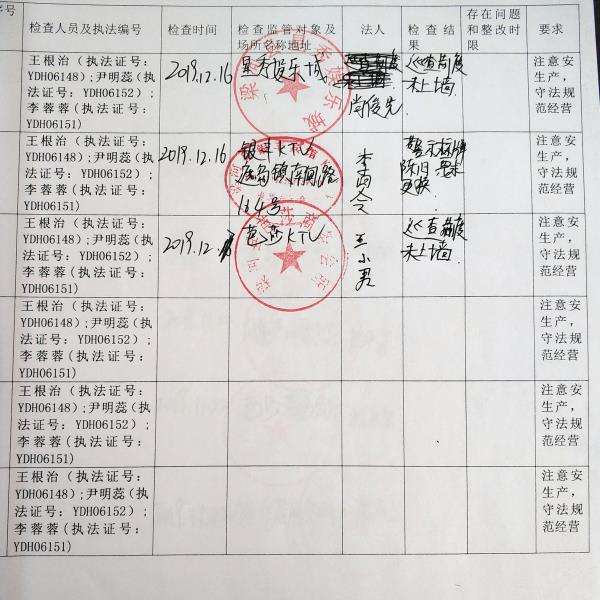 序号 检查人员及执法编号 检查时间 检查监管对象及场所名称地址 法人 检查结果 存在问题和整改时限 要求
王根治（执法证号：
YDH06148）;尹明蕊（执
法证号：YDH06152）；
李蓉蓉(执法证号：
YDH06151)
2019.12.16
星秀娱乐城
肖俊先
巡查制度
未上墙
注意安
生产，
守法规
范经营
王根治（执法证号：
YDH06148）;尹明蕊（执
法证号：YDH06152）；
李蓉蓉(执法证号：
YDH06151)
2019.12.16
银丰KTV
114号
警示标牌
陈旧
更换
注意安
生产，
守法规
范经营
王根治（执法证号：
YDH06148）;尹明蕊（执
法证号：YDH06152）；
李蓉蓉(执法证号：
YDH06151)
2019.12.
芭莎KTV
王小君
巡查制度
未上墙
注意安
生产，
守法规
范经营
王根治（执法证号：
YDH06148）;尹明蕊（执
法证号：YDH06152）；
李蓉蓉(执法证号：
YDH06151)
注意安
生产，
守法规
范经营
王根治（执法证号：
YDH06148）;尹明蕊（执
法证号：YDH06152）；
李蓉蓉(执法证号：
YDH06151)
注意安
生产，
守法规
范经营
王根治（执法证号：
YDH06148）;尹明蕊（执
法证号：YDH06152）；
李蓉蓉(执法证号：
YDH06151)
注意安
生产，
守法规
范经营